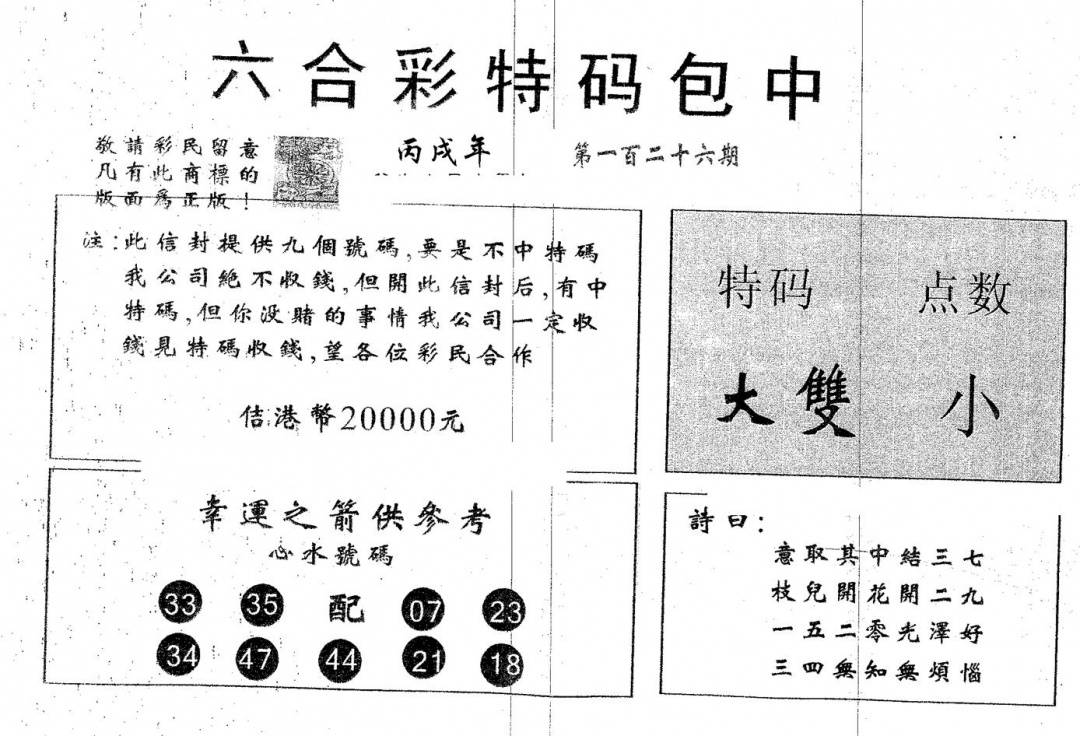 六合彩特码包中
敬請彩民留意
凡有此商標的
版面爲正版!
丙戌年
第一百二十六期
注:此信封提供九個號碼,要是不中特碼
我公司絕不收錢,但開此信封后,有中
特碼,但你没賭的事情我公司一定收
錢見特碼收錢,望各位彩民合作
佶港幣20000元
特码 点数
大雙 小
幸運之箭供參考
心水號碼
33 35 配 07 23
34 47 44 21 18
詩曰:
意取其中結三七
枝兒開花開二九
一五二零光澤好
三四無知無煩惱